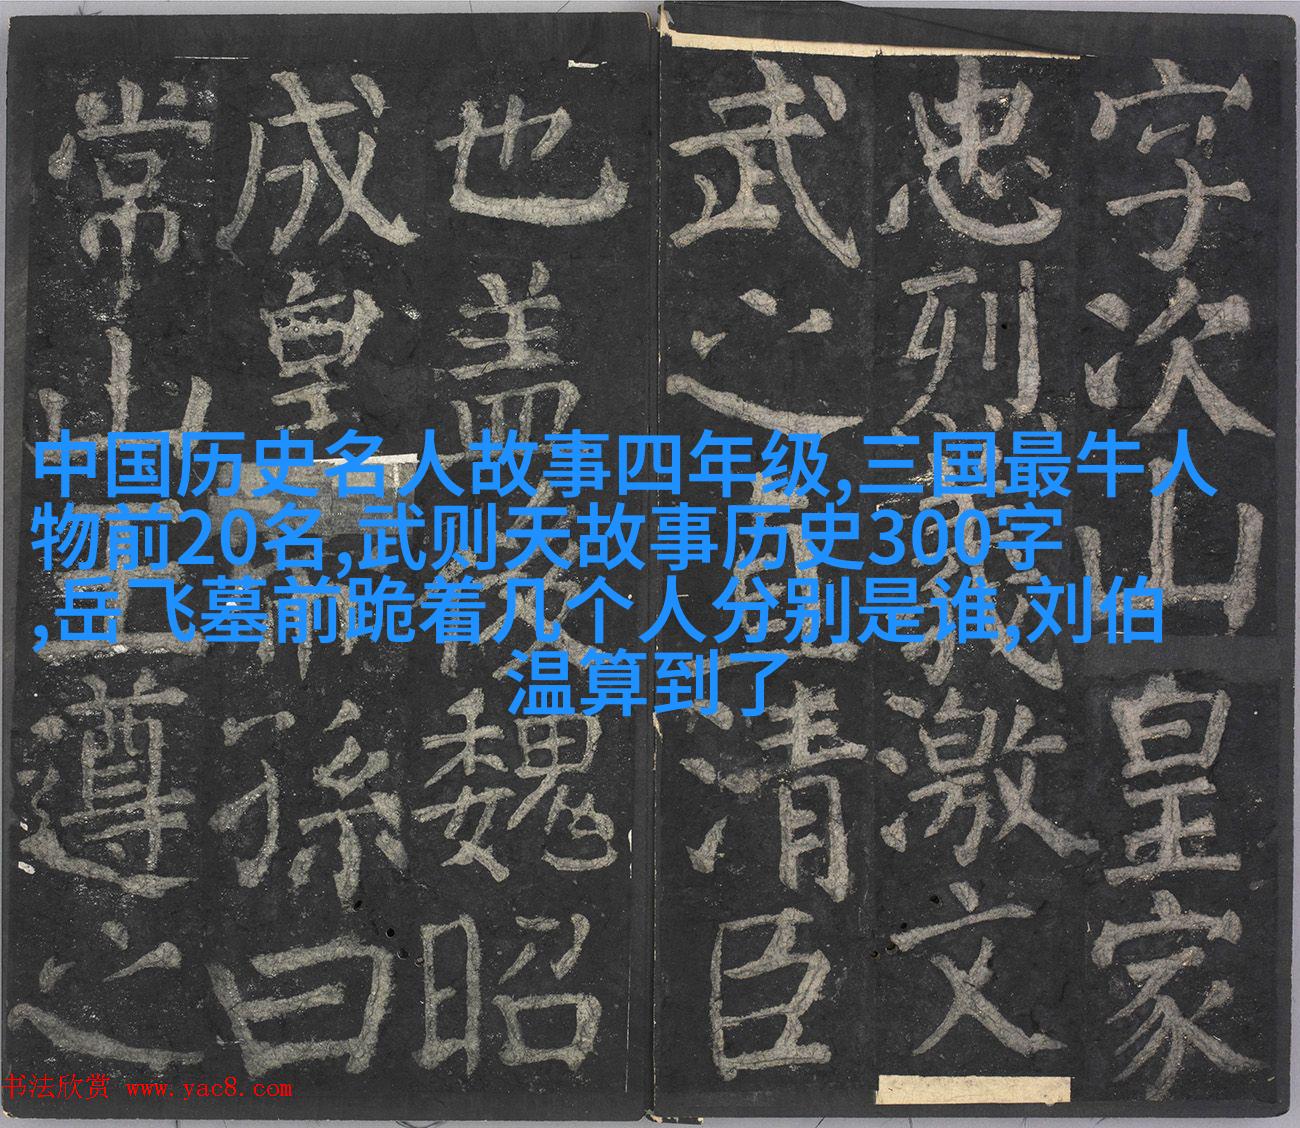 字次山皇家
忠烈義激文
武之直清臣
也盖後魏昭
成皇帝孫曰
常山王遵之
中国历史名人故事四年级,三国最牛人
物前20名,武则天故事历史300字
,岳飞墓前跪着几个人分别是谁,刘伯
温算到了
书法欣赏 www.yac8.com